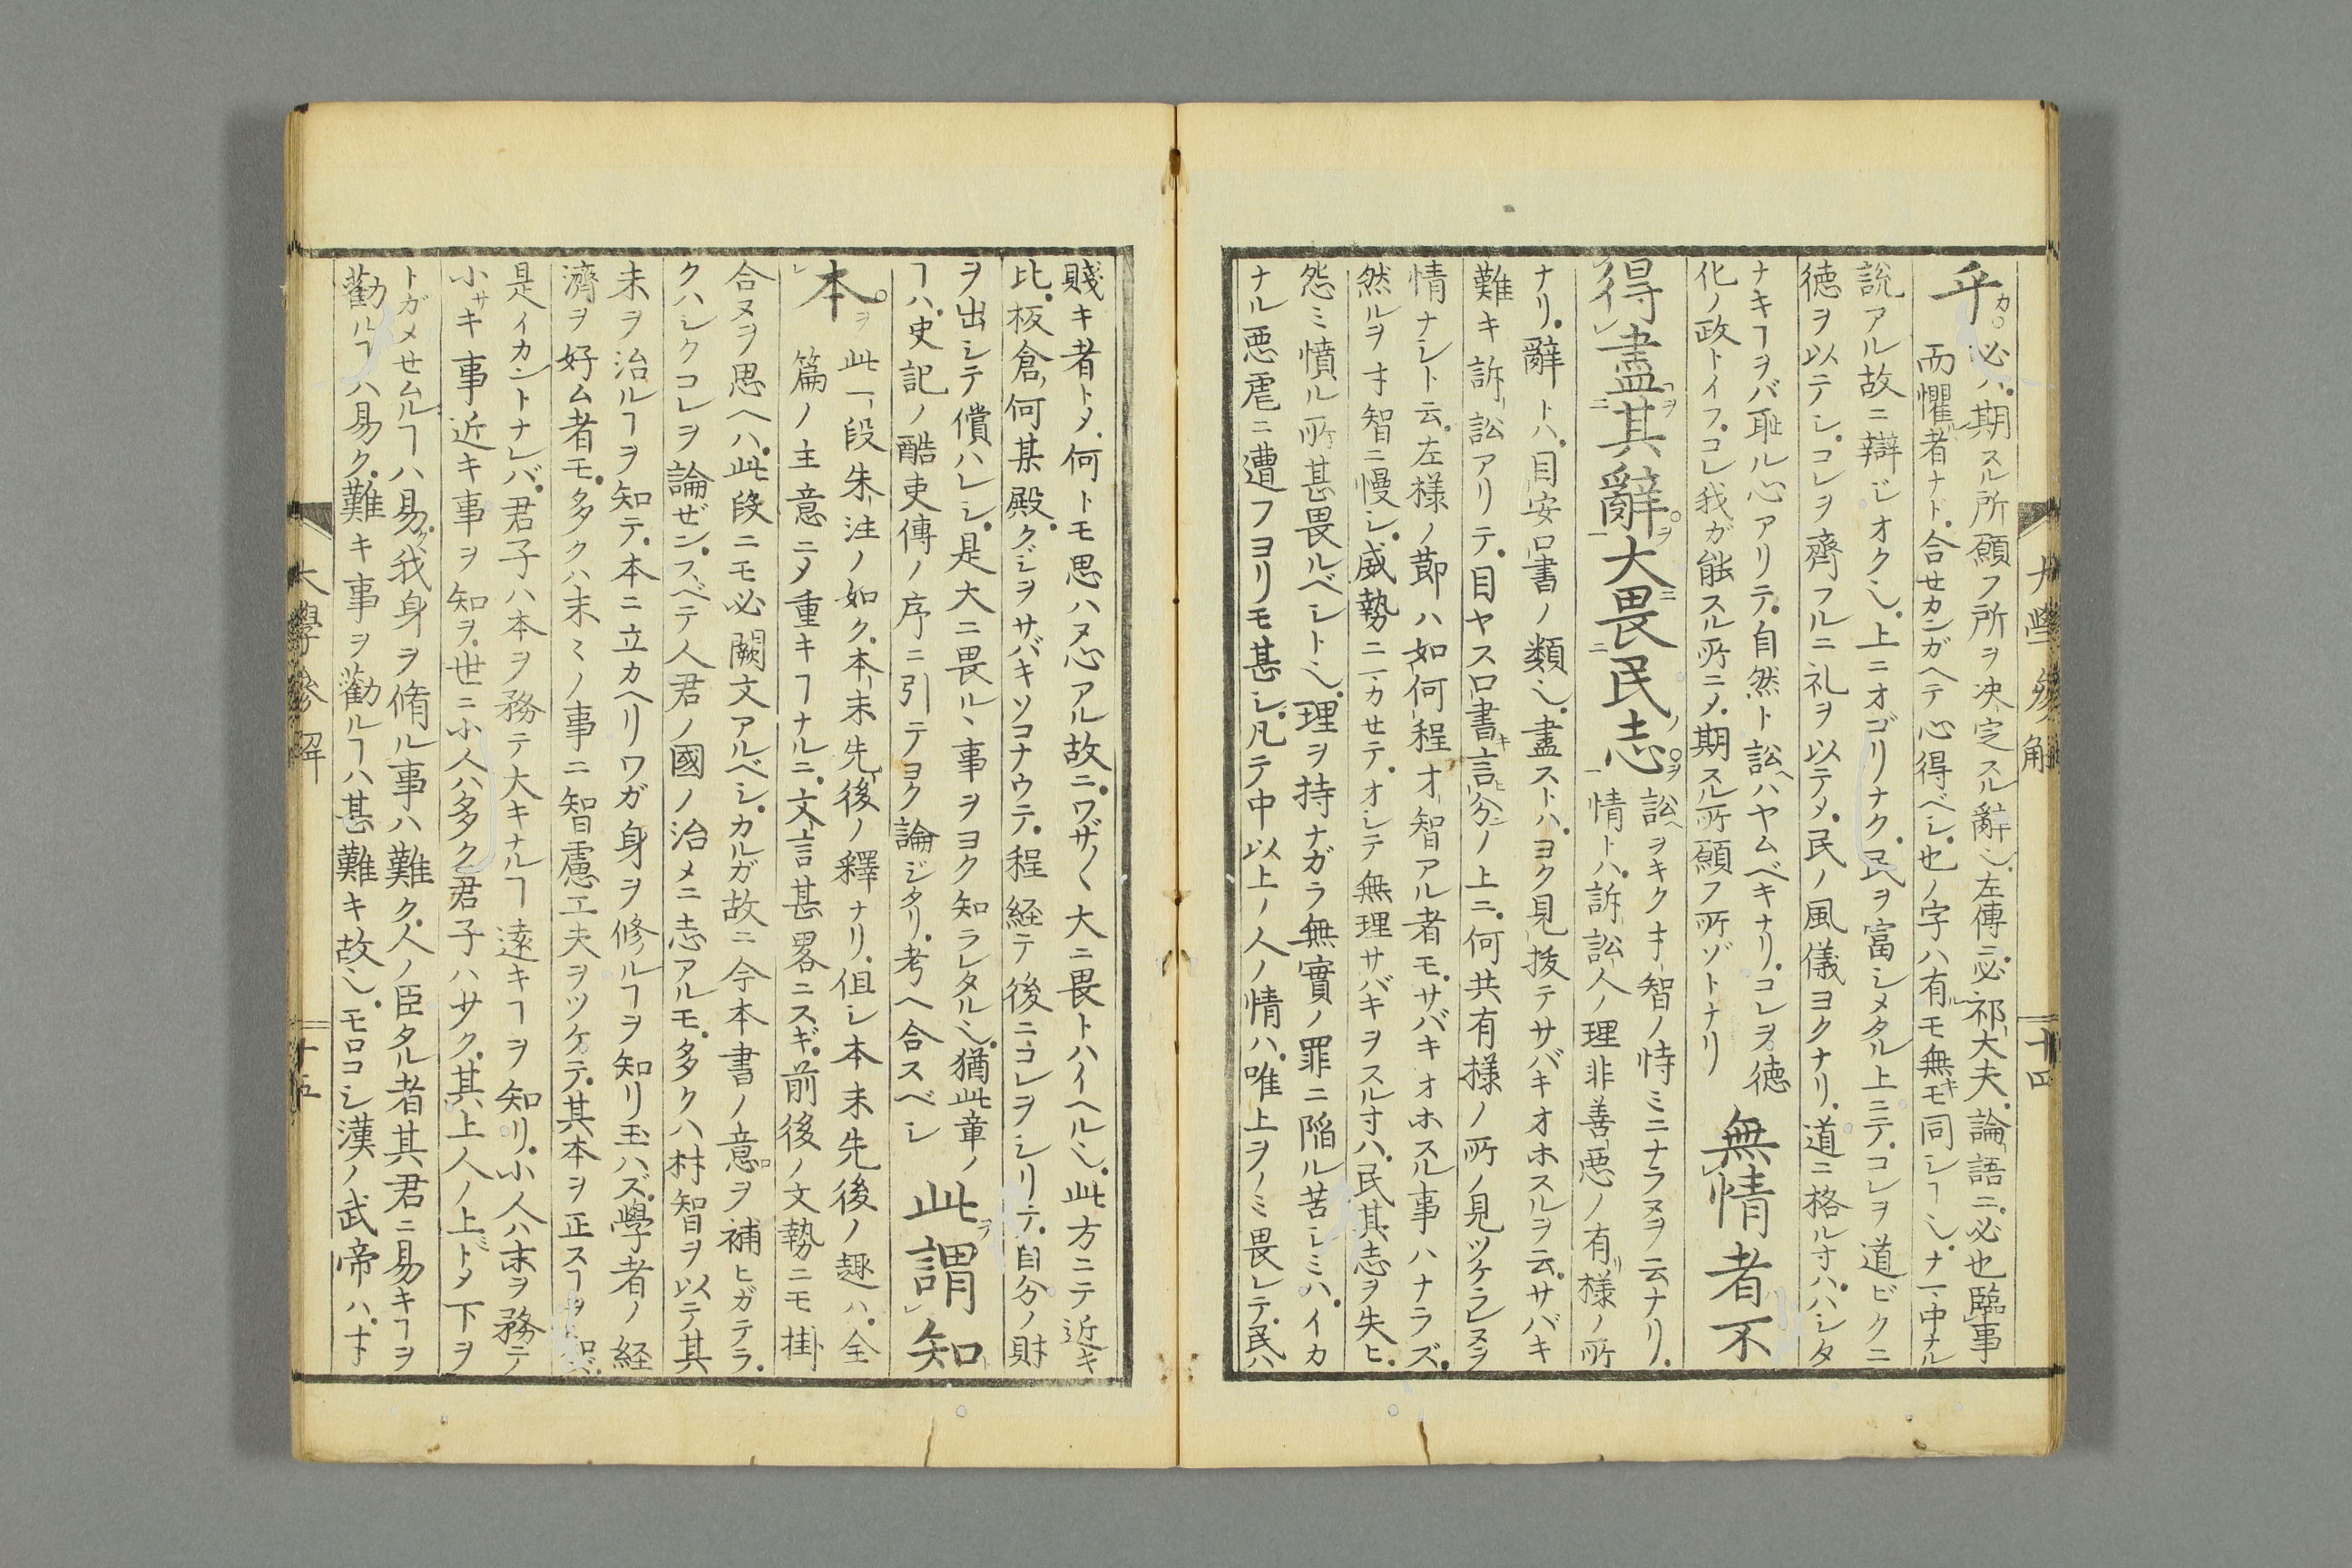 大學參解
十四
乎 必ハ期スル所願フ所ヲ决定スル辭也左傳ニ必祁大夫論語ニ必也臨事
而懼者ナド合せカンガヘテ心得ベシ也ノ字ハ有ルモ無キモ同シヿ也ナ
説アル故ニ辯じオクヘ也上ニオゴリナク民ヲ富シメタル上ニテコレヲ道ビクニ
徳ヲ以テシコレヲ齊フルニ礼ヲ以テメ民ノ風儀ヨクナリ道ニ格ルヰハハシタ
ナキヿヲバ耻ル心アリテ自然ト訟ヘハヤムベキナリコレヲ徳
化ノ政トイフコレ我ガ能スル所ニメ期スル所願フ所ゾトナリ 無情者不
得盡其辭大畏民志 訟ヘヲキクキ智ノ恃ミニナラヌヲ云ナリ
情トハ訴訟人ノ理非善悪ノ有様ノ所
ナリ辭トハ目安口書ノ類也盡ストハヨク見抜テサバキオホスルヲ云サバキ
難キ訴訟アリテ目ヤス口書言分ノ上ニ何共有様ノ所ノ見ツケラレヌヲ
情ナシト云左様ノ節ハ如何程才智アル者モサバキオホスル事ハナラズ
然ルヲ才智ニ慢シ威勢ニマカせテオシテ無理サバキヲスルヰハ民其志ヲ失ヒ
怨ミ憤ル所甚畏ルベシト也理ヲ持ナガラ無實ノ罪ニ陥ル苦シミハイカ
ナル悪虐ニ遭フヨリモ甚シ凡テ中以上ノ人ノ情ハ唯上ヲノミ畏レテ民ハ
賤キ者トメ何トモ思ハヌ心アル故ニワザ〱大ニ畏トハイヘル也此方ニテ近キ
比板倉何某殿クジヲサバキソコナウテ程経テ後ニコレヲシリテ自分ノ財
ヲ出シテ償ハレシ是大ニ畏ル、事ヲヨク知ラレタル也猶此章ノ
ヿハ史記ノ酷吏傳ノ序ニ引テヨク論ジタリ考ヘ合スベシ 此謂知
本 此一段朱注ノ如ク本末先後ノ釋ナリ但シ本末先後ノ趣ハ全
篇ノ主意ニメ重キヿナルニ文言甚畧ニスギ前後ノ文勢ニモ掛
合ヌヲ思ヘハ此段ニモ必闕文アルベシカルガ故ニ今本書ノ意ヲ補ヒガテラ
クハシクコレヲ論ゼンスベテ人君ノ國ノ治メニ志アルモ多クハ材智ヲ以テ其
末ヲ治ルヿヲ知テ本ニ立カヘリワガ身ヲ修ルヿヲ知リ玉ハズ學者ノ経
濟ヲ好ム者モ多クハ末ミノ事ニ智慮工夫ヲツケテ其本ヲ正スヿヲ知ズ
是イカントナレバ君子ハ本ヲ務テ大キナルヿ遠キヿヲ知リ小人ハ末ヲ務テ
小サキ事近キ事ヲ知ヲ世ニ小人ハ多ク君子ハサク其上人ノ上トメ下ヲ
トガメせムルヿハ易ク我身ヲ脩ル事ハ難ク人ノ臣タル者其君ニ易キヿヲ
勸ルヿハ易ク難キ事ヲ勸ルヿハ甚難キ故也モロコシ漢ノ武帝ハ才
大學參解
十五